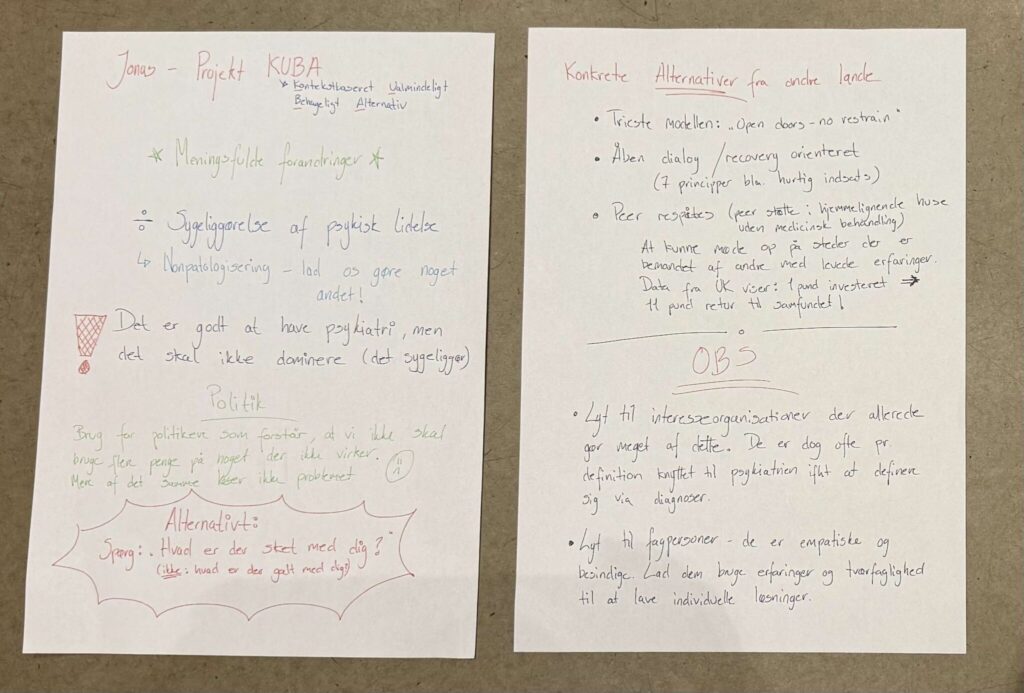 Jonas - Projekt KUBA
Kontekstbaseret Ualmindeligt
Behageligt Alternativ
* Meningsfulde forandringer *
÷ Sygeliggørelse af psykisk lidelse
↳ Nonpatologisering - lad os gøre noget
andet!
Det er godt at have psykiatri, men
det skal ikke dominere (det sygeliggør)
Politik
Brug for politikere som forstår, at vi ikke skal
bruge flere penge på noget der ikke virker.
Mere af det samme løser ikke problemet
Alternativt:
Spørg: . Hvad er der sket med dig?
(ikke: hvad er der galt med dig?)
Konkrete Alternativer fra andre lande
• Trieste modellen: „Open doors - no restrain"
• Åben dialog / recovery orienteret
(7 principper bla. hurtig indsats)
• Peer respites (peer støtte i hjemmelignende huse
uden medicinsk behandling)
At kunne møde op på steder der er
bemandet af andre med levede erfaringer.
Data fra UK viser: 1 pund investeret ⇒
11 pund retur til samfundet!
OBS
• Lyt til interesseorganisationer der allerede
gør meget af dette. De er dog ofte pr.
definition knyttet til psykiatrien ifht at definere
sig via diagnoser.
• Lyt til fagpersoner - de er empatiske og
besindige. Lad dem bruge erfaringer og tværfaglighed
til at lave individuelle løsninger.